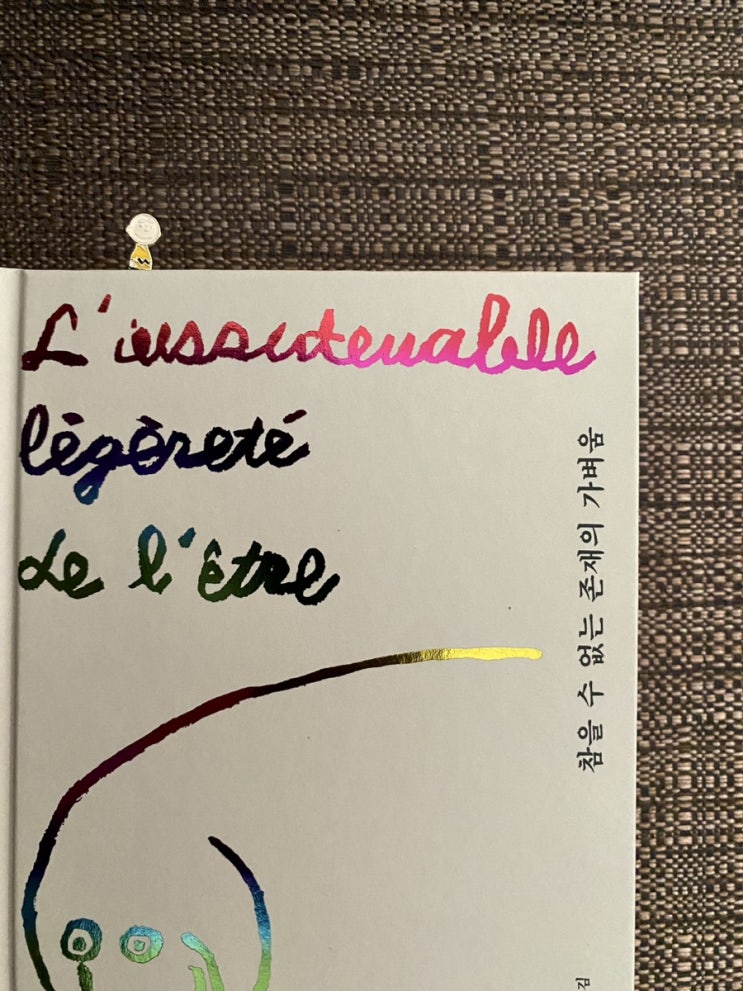 L'insoutenable
légèreté
de l'être
참을 수 없는 존재의 가벼움
김